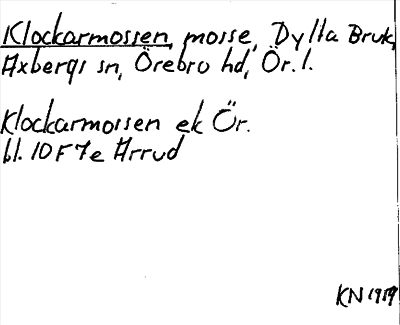 Klockarmossen, mosse, Dylta Bruk,
Axbergs sn, Örebro hd, Ör. l.
Klockarmossen ek Ör.
bl. 10 F 7e Ärrud
KN 1959